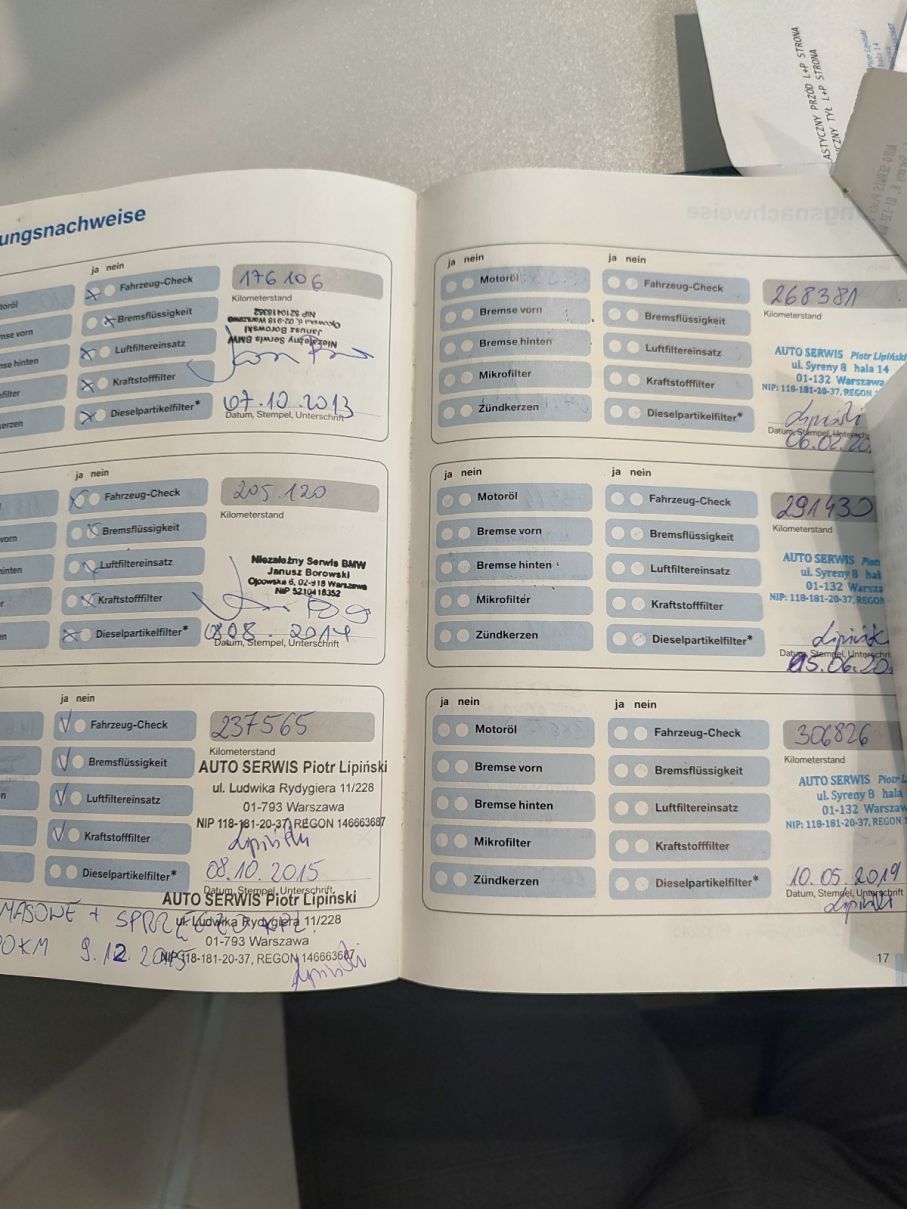 ASTYCZNY PRZÓD L+P STRONA
CZNY TYŁ L+P STRONA
ungsnachweise
ja nein
toröl
Fahrzeug-Check
176 106
Kilometerstand
mse vorn
Bremsflüssigkeit
Niezależny Serwis BMW
Janusz Borowski
Ojcowska 6, 02-918 Warszawa
NIP 5210418352
mse hinten
Luftfiltereinsatz
filter
Kraftstofffilter
kerzen
Dieselpartikelfilter*
07.10.2013
Datum, Stempel, Unterschrift
ja nein
Fahrzeug-Check
205.120
Kilometerstand
vorn
Bremsflüssigkeit
inten
Luftfiltereinsatz
Niezależny Serwis BMW
Janusz Borowski
Ojcowska 6, 02-918 Warszawa
NIP 5210418352
r
Kraftstofffilter
en
Dieselpartikelfilter*
0808.2014
Datum, Stempel, Unterschrift
ja nein
Fahrzeug-Check
237565
Kilometerstand
Bremsflüssigkeit
AUTO SERWIS Piotr Lipiński
ul. Ludwika Rydygiera 11/228
01-793 Warszawa
NIP 118-181-20-37, REGON 146663687
n
Luftfiltereinsatz
Kraftstofffilter
Lipiński
Dieselpartikelfilter*
08.10.2015
Datum, Stempel, Unterschrift
AUTO SERWIS Piotr Lipiński
ul. Ludwika Rydygiera 11/228
01-793 Warszawa
NIP 118-181-20-37, REGON 146663687
MASOWE + SPRZĘ
0KM 9.12.2015
Lipiński
ja nein
Motoröl
Bremse vorn
Bremse hinten
Mikrofilter
Zündkerzen
ja nein
Fahrzeug-Check
Bremsflüssigkeit
Luftfiltereinsatz
Kraftstofffilter
Dieselpartikelfilter*
268381
Kilometerstand
AUTO SERWIS Piotr Lipiński
ul. Syreny 8 hala 14
01-132 Warszawa
NIP: 118-181-20-37, REGON
Lipiński
Datum, Stempel, Unterschr
06.02.20
ja nein
Motoröl
Bremse vorn
Bremse hinten
Mikrofilter
Zündkerzen
ja nein
Fahrzeug-Check
Bremsflüssigkeit
Luftfiltereinsatz
Kraftstofffilter
Dieselpartikelfilter*
291430
Kilometerstand
AUTO SERWIS Piot
ul. Syreny 8 hal
01-132 Warsza
NIP: 118-181-20-37, REGON
Lipińsk
Datum, Stempel, Unterschri
15.06.20
ja nein
Motoröl
Bremse vorn
Bremse hinten
Mikrofilter
Zündkerzen
ja nein
Fahrzeug-Check
Bremsflüssigkeit
Luftfiltereinsatz
Kraftstofffilter
Dieselpartikelfilter*
306826
Kilometerstand
AUTO SERWIS Piotr L
ul. Syreny 8 hala
01-132 Warszaw
NIP: 118-181-20-37, REGON 1
10.05.2019
Datum, Stempel, Unterschrift
Lipiński
17